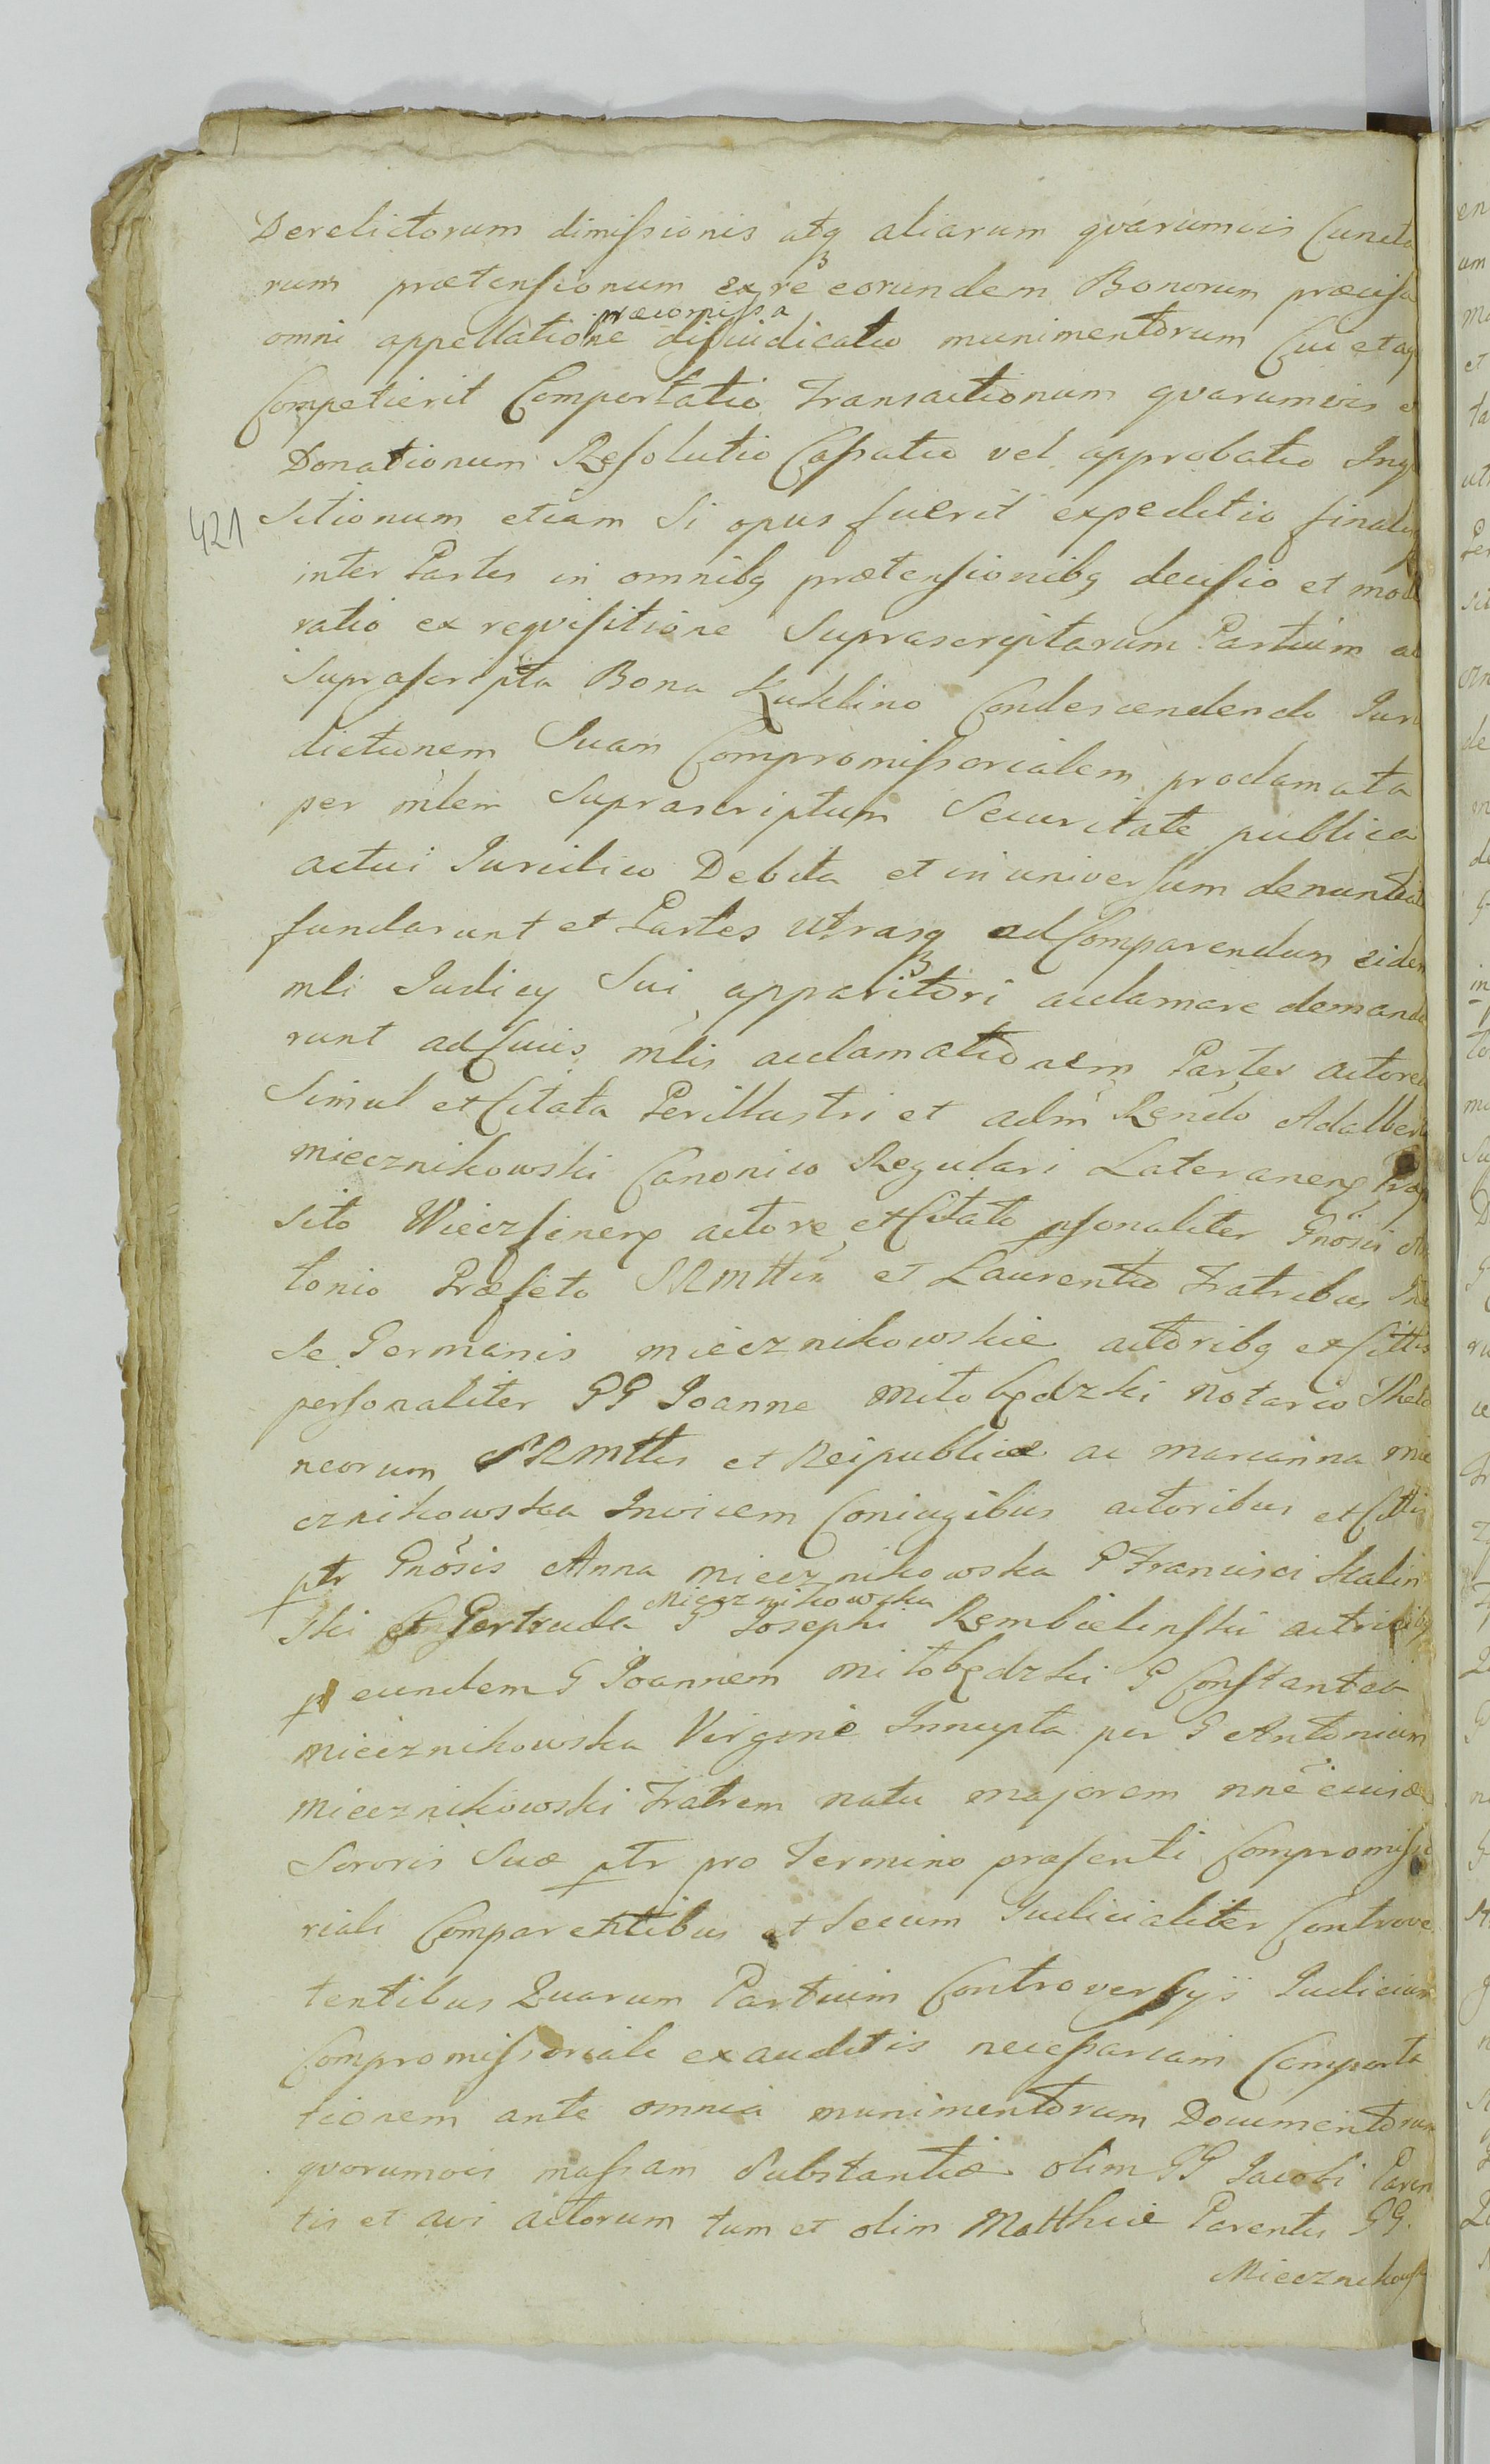 Derelictorum dimissionis atq aliarum qvarumvis Cuncta
rum prætensionum ex re eorundem Bonorum præcisa
omni appellatione præcompissa dijudicatio munimentorum Cui et aq
Competierit Comportatio Transactionum qvarumvis e
Donationum Resolutio Cassatio vel approbatio Inq
421
sitionum etiam Si opus fuerit expeditio finalis
inter Partes in omnibq prætensionibq decisio et mode
ratio ex reqvisitione Suprascriptarum Partium ad
suprascripta Bona Kuklino Condescendendo Juris
dictionem Suam Compromissorialem proclamata
per mlem Suprascriptum Securitate publica
actui Juridico Debita et in universum denuntiat
fundarunt et Partes utrasq ad Comparendum eidem
mli Judicy Sui apparitori acclamare demanda
runt ad Cuius mlis acclamationem Partes actorea
Simul et Citata Perillustri et adm Rendo Adalberto
miecznikowski Canonico Regulari Lateranen Præpo
sito Wieczfinen actore et Citato psonaliter Gnosis An
tonio Præfeto SRMttis et Laurentio Fratribus Inter
Se Germanis miecznikowskie actoribq et Cittis
personaliter GG Joanne Miłobędzki Notario Thelo
neorum SRMttis et Reipublicæ ac Marianna Mie
cznikowska Invicem Coniugibus actoribus et Cittis
ptr Gnosis Anna miecznikowska G Francisci Skalin
ski et Gertruda Miecznikowska G Josephi Rembielinski actricibq
p eundem G Joannem miłobędzki G Constantia
miecznikowska Virgine Innupta per G Antonium
miecznikowski Fratrem natu majorem nne cuius
Sororis Suæ ptr pro Termino præsenti Compromisso
riali Comparentibus et Secum Judicialiter Controver
tentibus Quarum Partium Controversyis Judicium
Compromissoriale exauditis necessariam Comporta
tionem ante omnia munimentorum Documentorum
qvorumvis massam Substantiæ olim GG Jacobi Paren
tis et avi actorum tum et olim Matthiæ Parentis GG.
Miecznikowsk